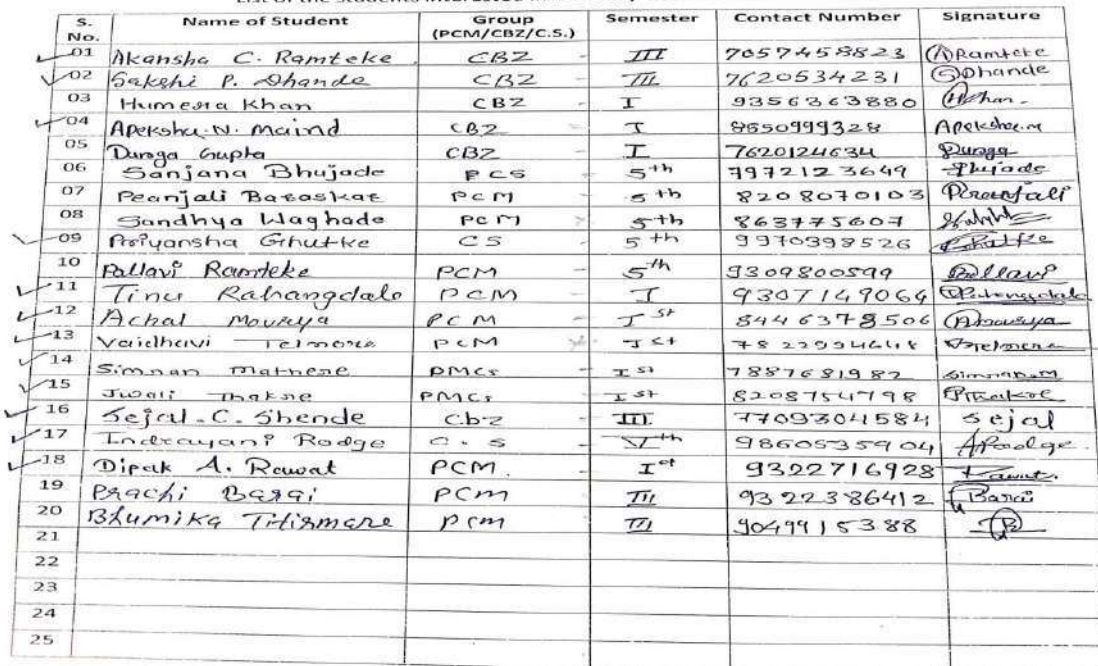 List of the students interested in
S. No. Name of Student Group (PCM/CBZ/C.S.) Semester Contact Number Signature
01 Akansha C. Ramteke CBZ III 7057458823 ARamteke
02 Sakshi P. Dhande CBZ III 7620534231 SDhande
03 Humera Khan CBZ I 9356363880
04 Apeksha.N. Maind CBZ I 8550999328 Apeksha.m
05 Durga Gupta CBZ I 7620124634 Durga
06 Sanjana Bhujade PCS 5th 7972123649 Bhujade
07 Peanjali Baraskar PCM 5th 8208070103
08 Sandhya Waghade PCM 5th 863775607
09 Priyansha Ghutke CS 5th 9970398526
10 Pallavi Ramteke PCM 5th 9309800599 Pallavi
11 Tinu Rahangdale PCM I 9307149064
12 Achal Mourya PCM Ist 8446378506 Amourya
13 Vaidhavi Telmore PCM Ist 7822994648
14 Simran Mathere PMCs Ist 7887681982 Simran.M
15 Juali Thakre PMCs Ist 8208754798
16 Sejal.C.Shende Cbz III 7709304584 Sejal
17 Indrayani Rodge C.S Vth 9860535904
18 Dipak A. Rawat PCM. Ist 9322716928 Rawat.
19 Prachi Barai PCm III 9322386412 Barai
20 Bhumika Titirmare pcm III 9049915388
21
22
23
24
25